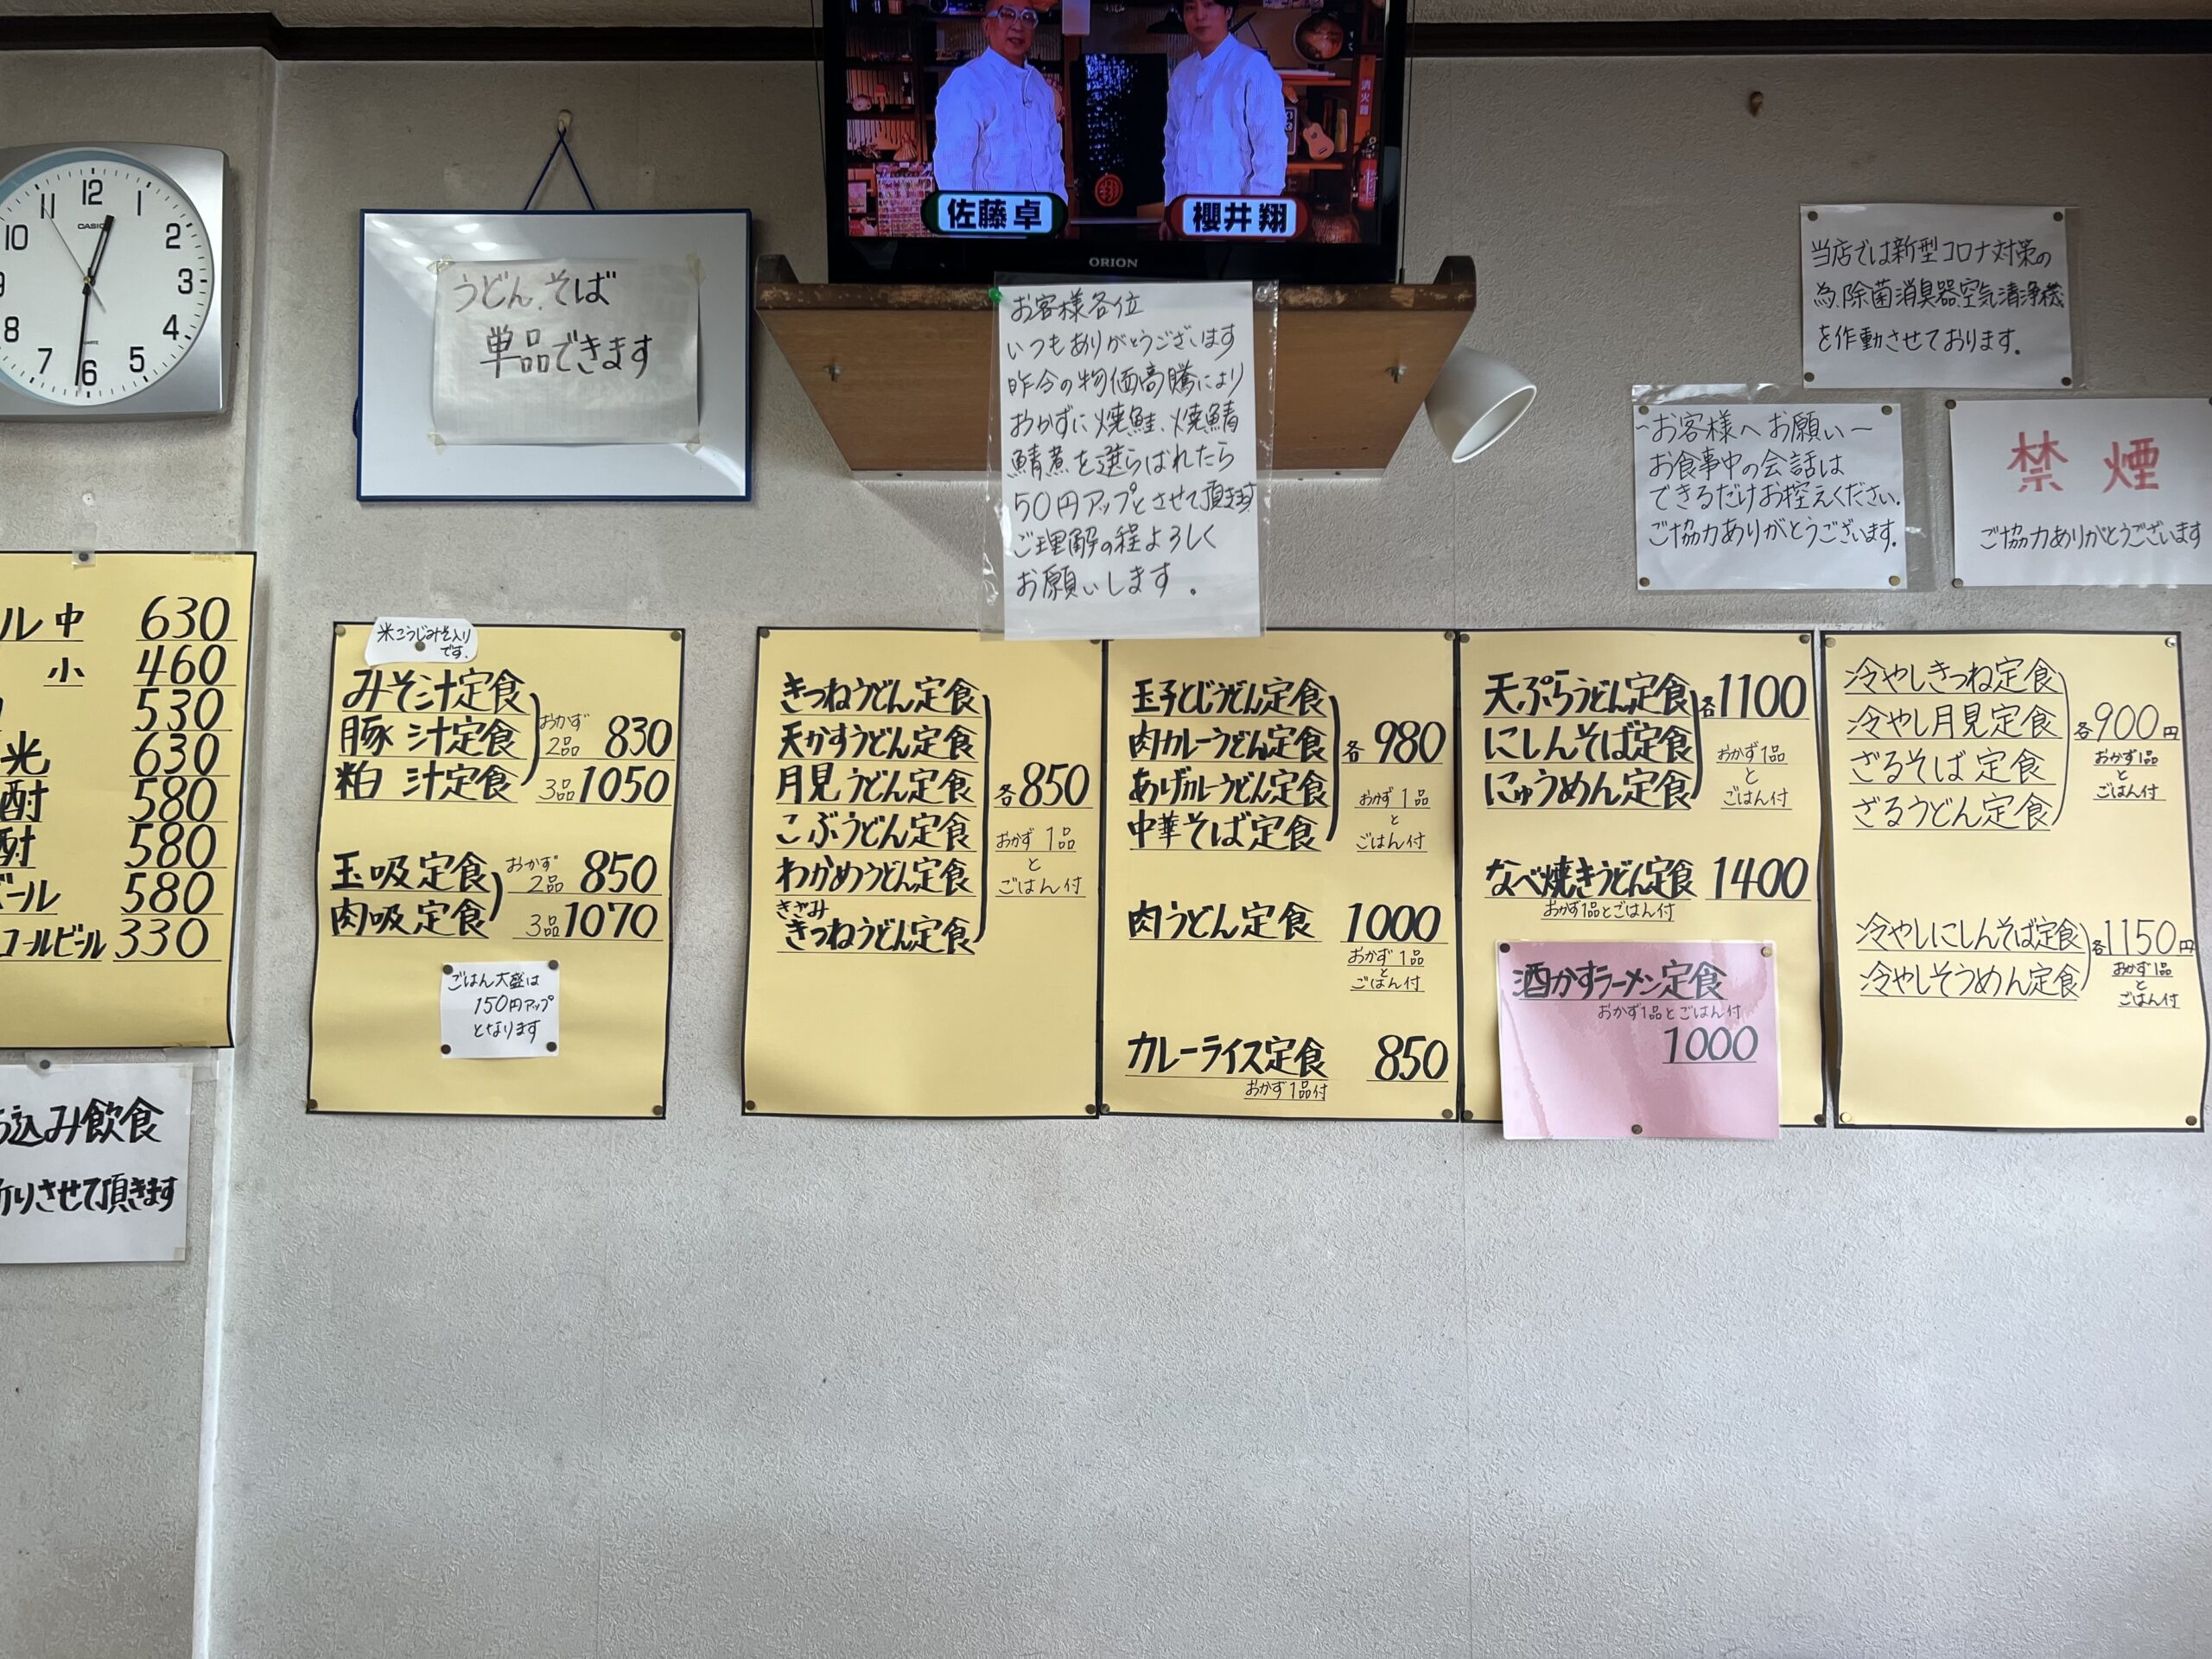 12
1
2
3
4
5
6
7
8
9
10
11
CASIO
QUARTZ
うどん.そば
単品できます
佐藤 卓
櫻井 翔
消火器
ORION
お客様各位
いつもありがとうございます
昨今の物価高騰により
おかずに焼鮭、焼鯖
鯖煮を選らばれたら
50円アップとさせて頂きます
ご理解の程よろしく
お願いします.
当店では新型コロナ対策の
為、除菌消臭器、空気清浄機
を作動させております.
~お客様へお願い~
お食事中の会話は
できるだけお控えください.
ご協力ありがとうございます.
禁 煙
ご協力ありがとうございます
ル 中 630
小 460
530
光 630
酎 580
酎 580
ール 580
コールビール 330
込み飲食
りさせて頂きます
米こうじみそ入り
です.
みそ汁定食
豚 汁定食 おかず2品 830
粕 汁定食 3品 1050
玉吸定食 おかず2品 850
肉吸定食 3品 1070
ごはん大盛は
150円アップ
となります
きつねうどん定食
天かすうどん定食
月見うどん定食
こぶうどん定食
わかめうどん定食
きざみ
きつねうどん定食
各850
おかず1品
と
ごはん付
玉子とじうどん定食
肉カレーうどん定食
あげカレーうどん定食
中華そば定食
各980
おかず1品
と
ごはん付
肉うどん定食 1000
おかず1品
と
ごはん付
カレーライス定食 850
おかず1品付
天ぷらうどん定食
にしんそば定食
にゅうめん定食
各1100
おかず1品
と
ごはん付
なべ焼きうどん定食 1400
おかず1品とごはん付
酒かすラーメン定食
おかず1品とごはん付
1000
冷やしきつね定食
冷やし月見定食
ざるそば定食
ざるうどん定食
各900円
おかず1品
と
ごはん付
冷やしにしんそば定食
冷やしそうめん定食
各1150円
おかず1品
と
ごはん付